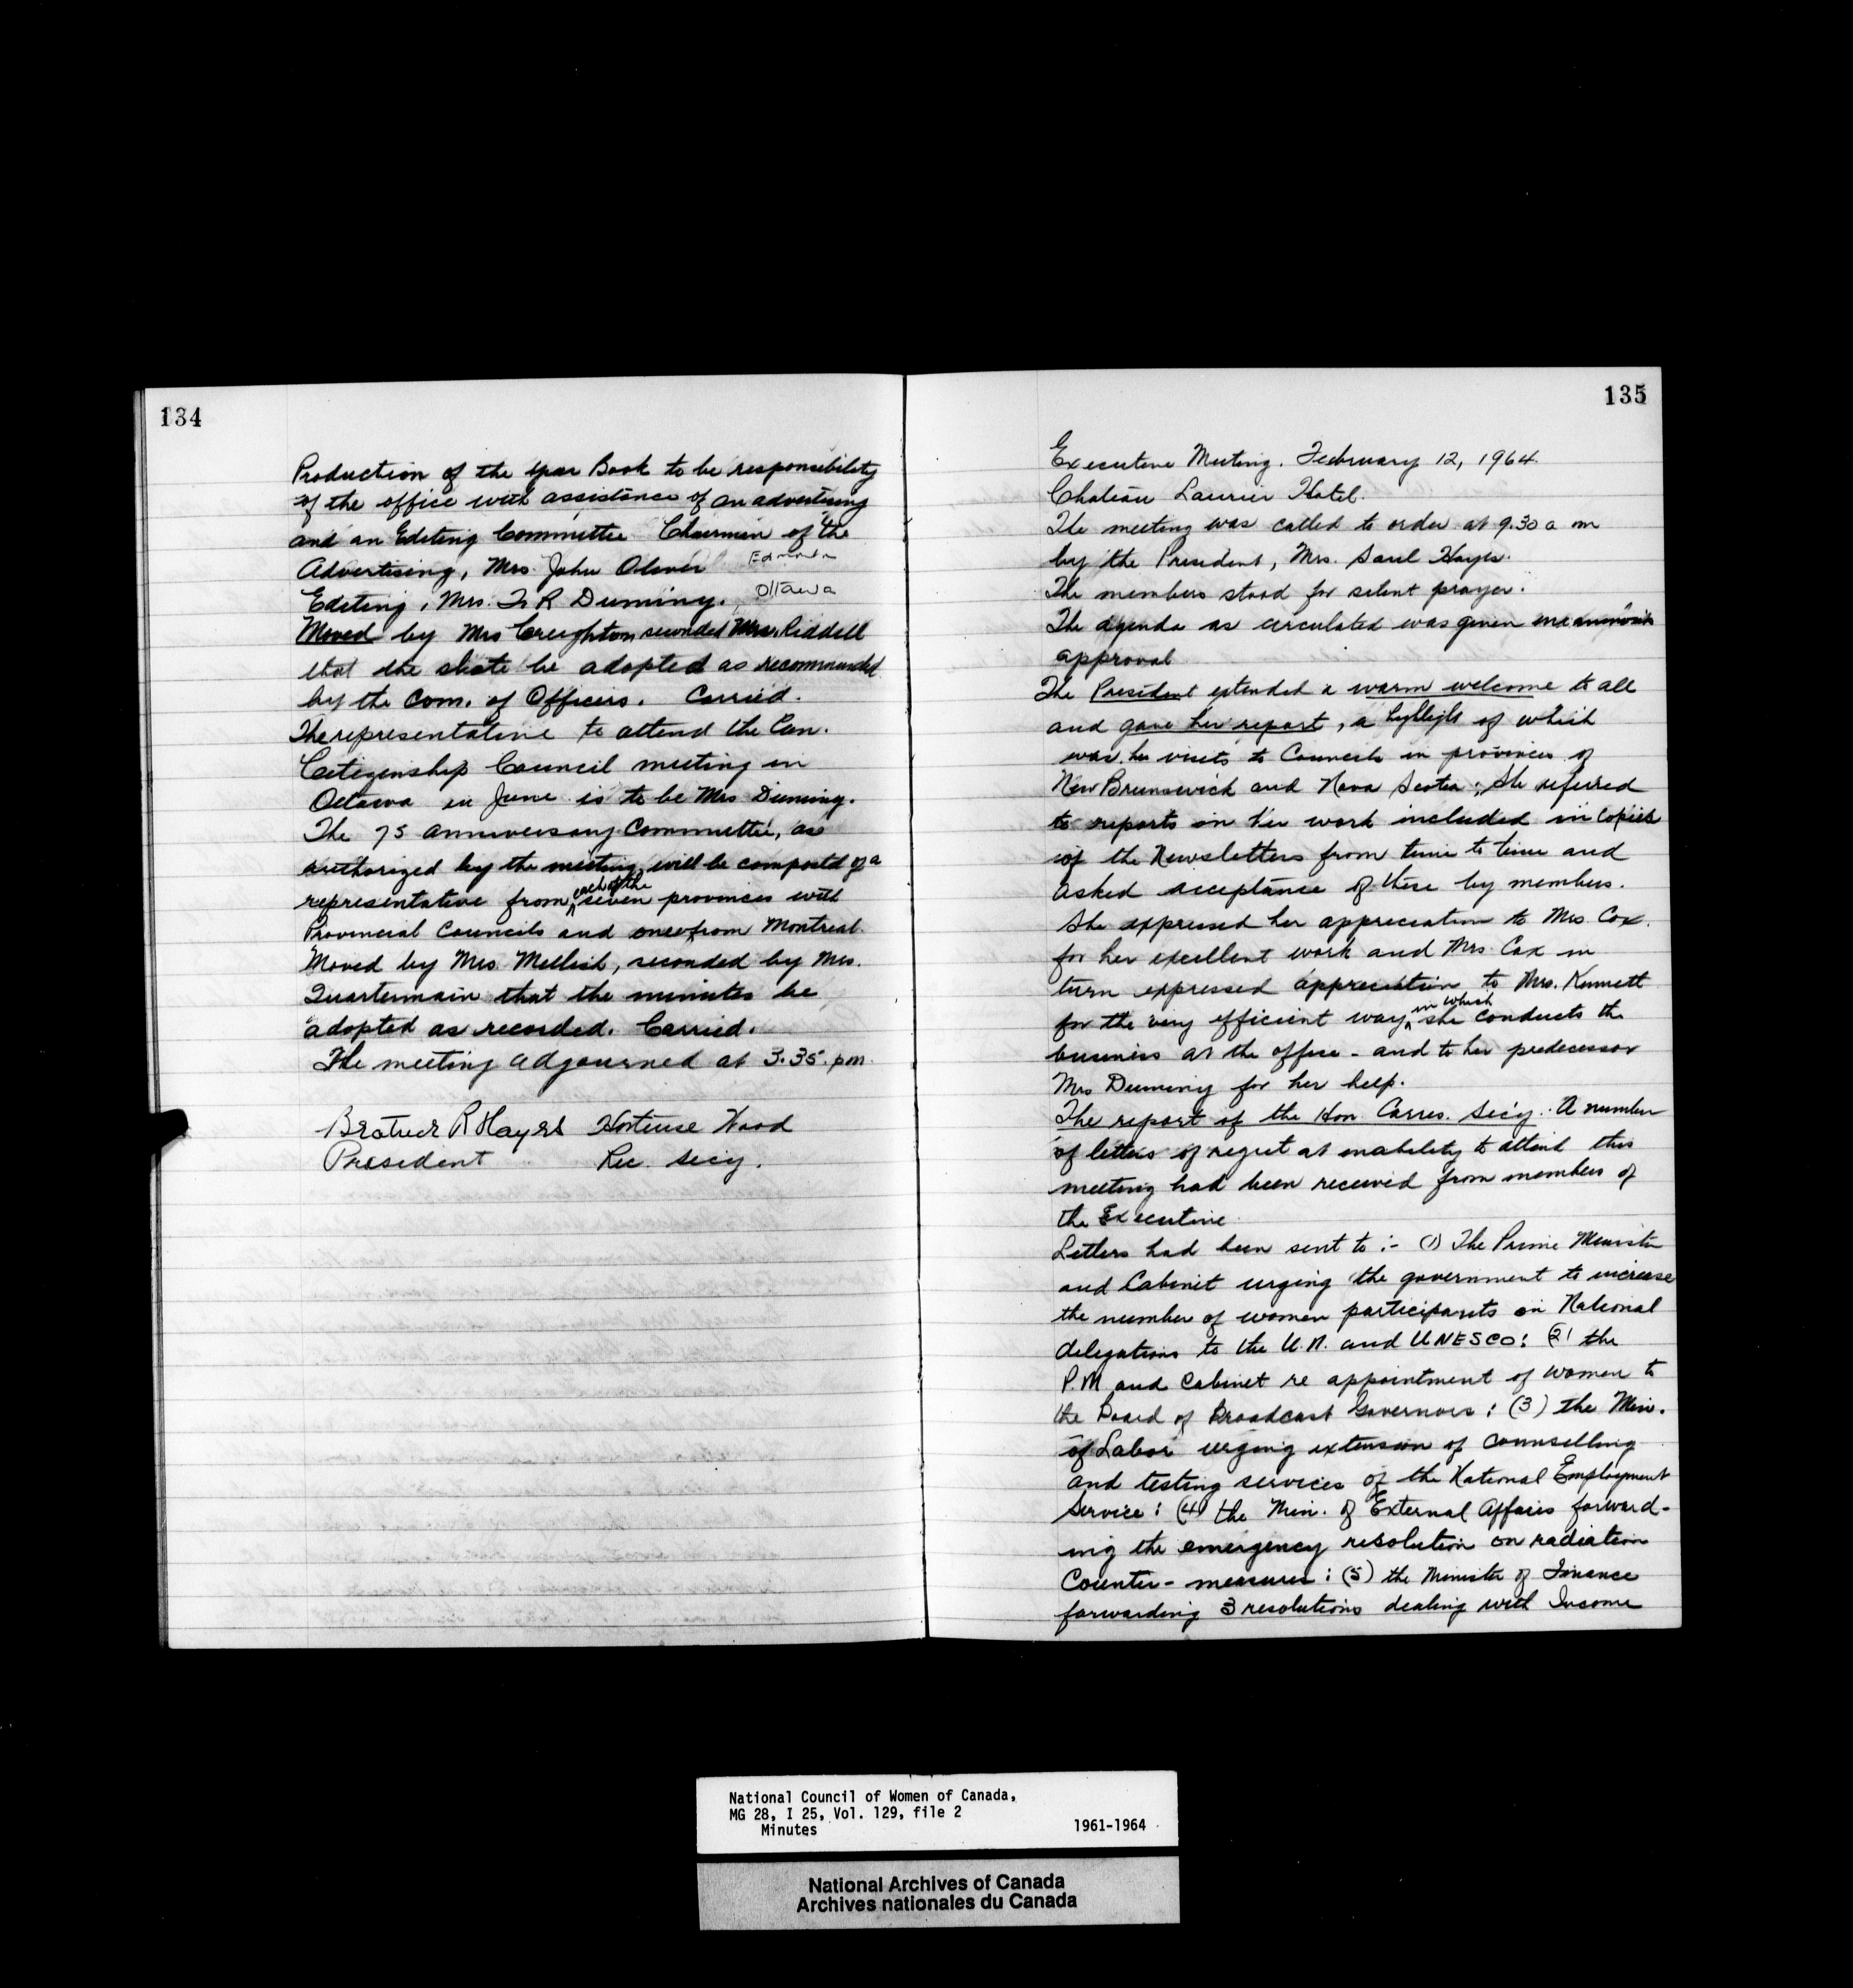 134
Production of the Year Book to be responsibility
of the office with assistance of an advertising
and an Editing Committee Chairman of the
Advertising, Mrs. John Oliver Edmonton
Editing, Mrs. F R Duminy. Ottawa
Moved by Mrs Creighton seconded Mrs. Riddell
that the slate be adopted as recommended
by the Com. of Officers. Carried.
The representative to attend the Can.
Citizenship Council meeting in
Ottawa in June is to be Mrs Duminy.
The 75 anniversary Committee, as
authorized by the meeting, will be composed of a
representative from each of the seven provinces with
Provincial Councils and one from Montreal.
Moved by Mrs. Mellish, seconded by Mrs.
Quartermain that the minutes be
adopted as recorded. Carried.
The meeting adjourned at 3.35. p.m.
Beatrice R Hayes Hortense Wood
President Rec. Secy.
135
Executive Meeting. February 12, 1964.
Chateau Laurier Hotel.
The meeting was called to order at 9.30 a m
by the President, Mrs. Saul Hayes.
The members stood for silent prayer.
The agenda as circulated was given unanimous
approval
The President extended a warm welcome to all
and gave her report, a of which
was her visits to Councils in provinces of
New Brunswick and Nova Scotia; She referred
to reports on her work included in copies
of the Newsletters from time to time and
asked acceptance of these by members.
She expressed her appreciation to Mrs. Cox.
for her excellent work and Mrs. Cox in
turn expressed appreciation to Mrs. Kennett
for the very efficient way in which she conducts the
business at the office - and to her predecessor
Mrs Duminy for her help.
The report of the Hon. Corres. Sec'y. A number
of letters of regret at inability to attend this
meeting had been received from members of
the Executive.
Letters had been sent to :- (1) The Prime Minister
and Cabinet urging the government to increase
the number of women participants on National
delegations to the U.N. and UNESCO: (2) the
P.M and Cabinet re appointment of women to
the Board of Broadcast Governors: (3) the Min.
of Labor urging extension of counselling
and testing services of the National Employment
Service: (4) the Min. of External Affairs forward-
ing the emergency resolution on radiation
Counter-measures: (5) the Minister of Finance
forwarding 3 resolutions dealing with Income
National Council of Women of Canada,
MG 28, I 25, Vol. 129, file 2
Minutes 1961-1964
National Archives of Canada
Archives nationales du Canada